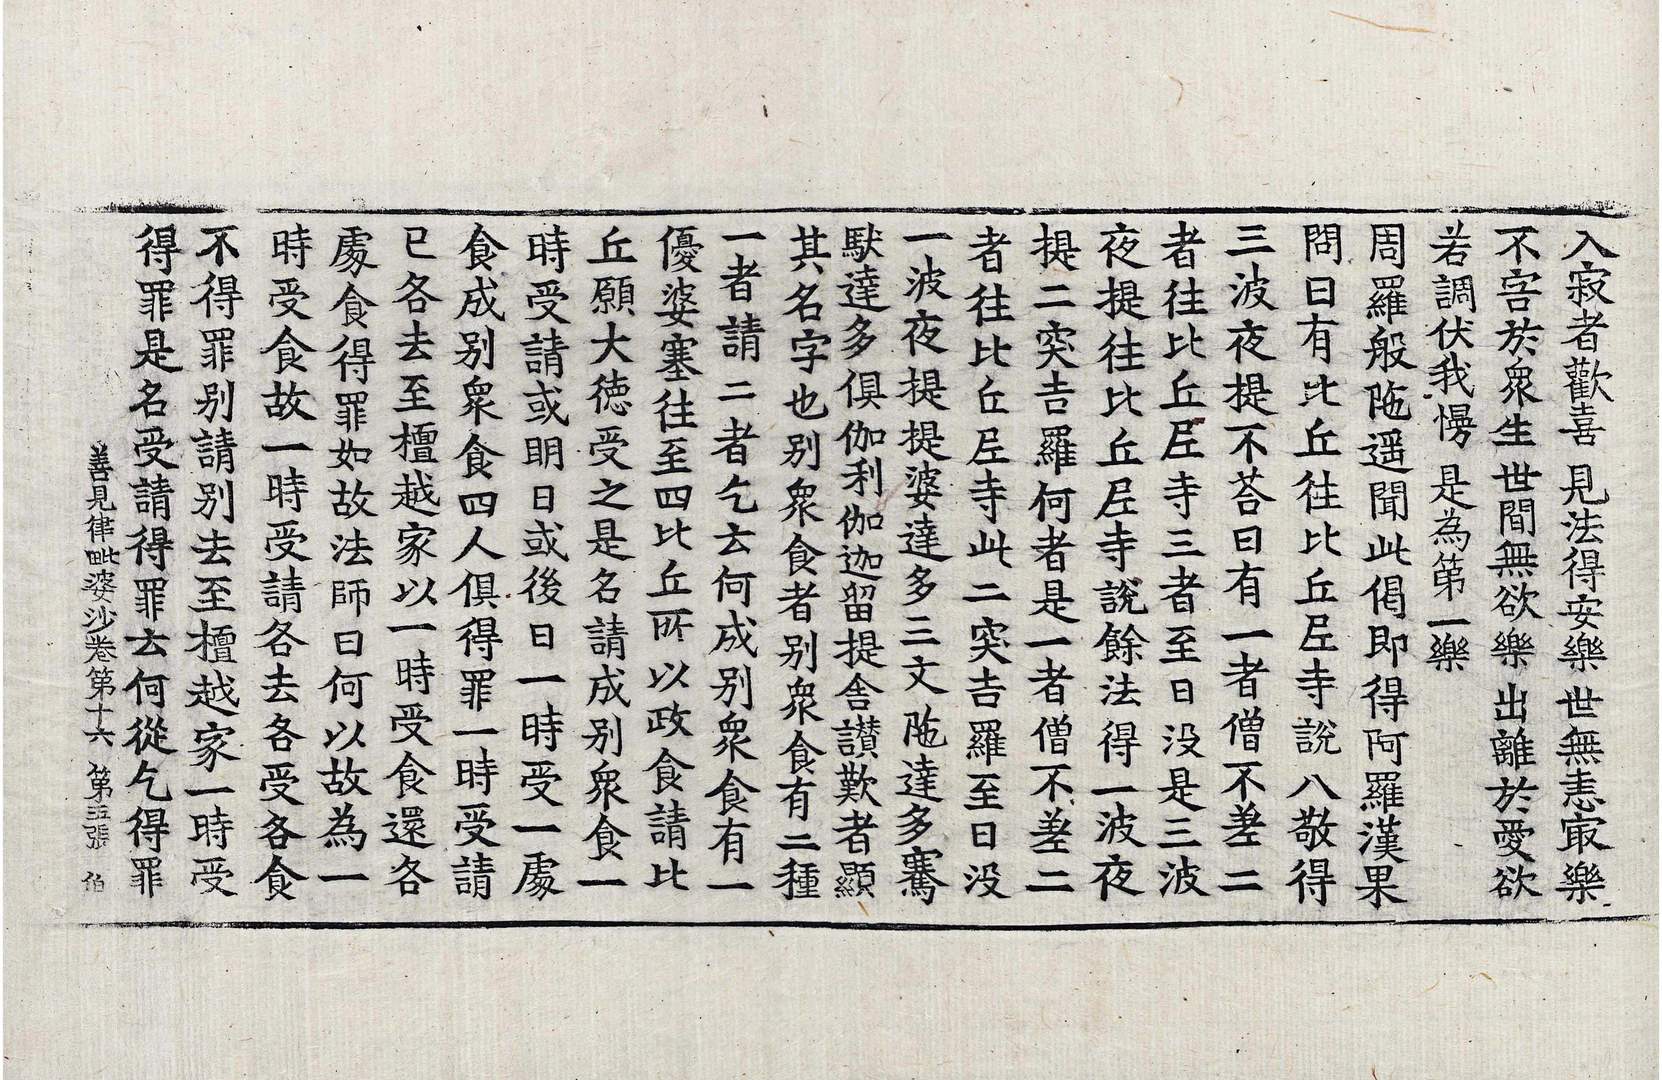 入寂者歡喜 見法得安樂 世無恚㝡樂
不害於衆生 世間無欲樂 出離於愛欲
若調伏我慢 是為第一樂
周羅般陁遥聞此偈即得阿羅漢果
問曰有比丘往比丘𡰱寺說八敬得
三波夜提不荅曰有一者僧不差二
者往比丘𡰱寺三者至日没是三波
夜提往比丘𡰱寺說餘法得一波夜
提二突吉羅何者是一者僧不差二
者往比丘𡰱寺此二突吉羅至日没
一波夜提提婆達多三文陁達多騫
馱達多俱伽利伽迦留提舍讃歎者顯
其名字也别衆食者别衆食有二種
一者請二者乞云何成别衆食有一
優婆塞往至四比丘所以政食請比
丘願大徳受之是名請成别衆食一
時受請或明日或後日一時受一䖏
食成别衆食四人俱得罪一時受請
已各去至檀越家以一時受食還各
䖏食得罪如故法師曰何以故為一
時受食故一時受請各去各受各食
不得罪别請别去至檀越家一時受
得罪是名受請得罪云何從乞得罪
善見律毗婆沙卷第十六 第五張 伯